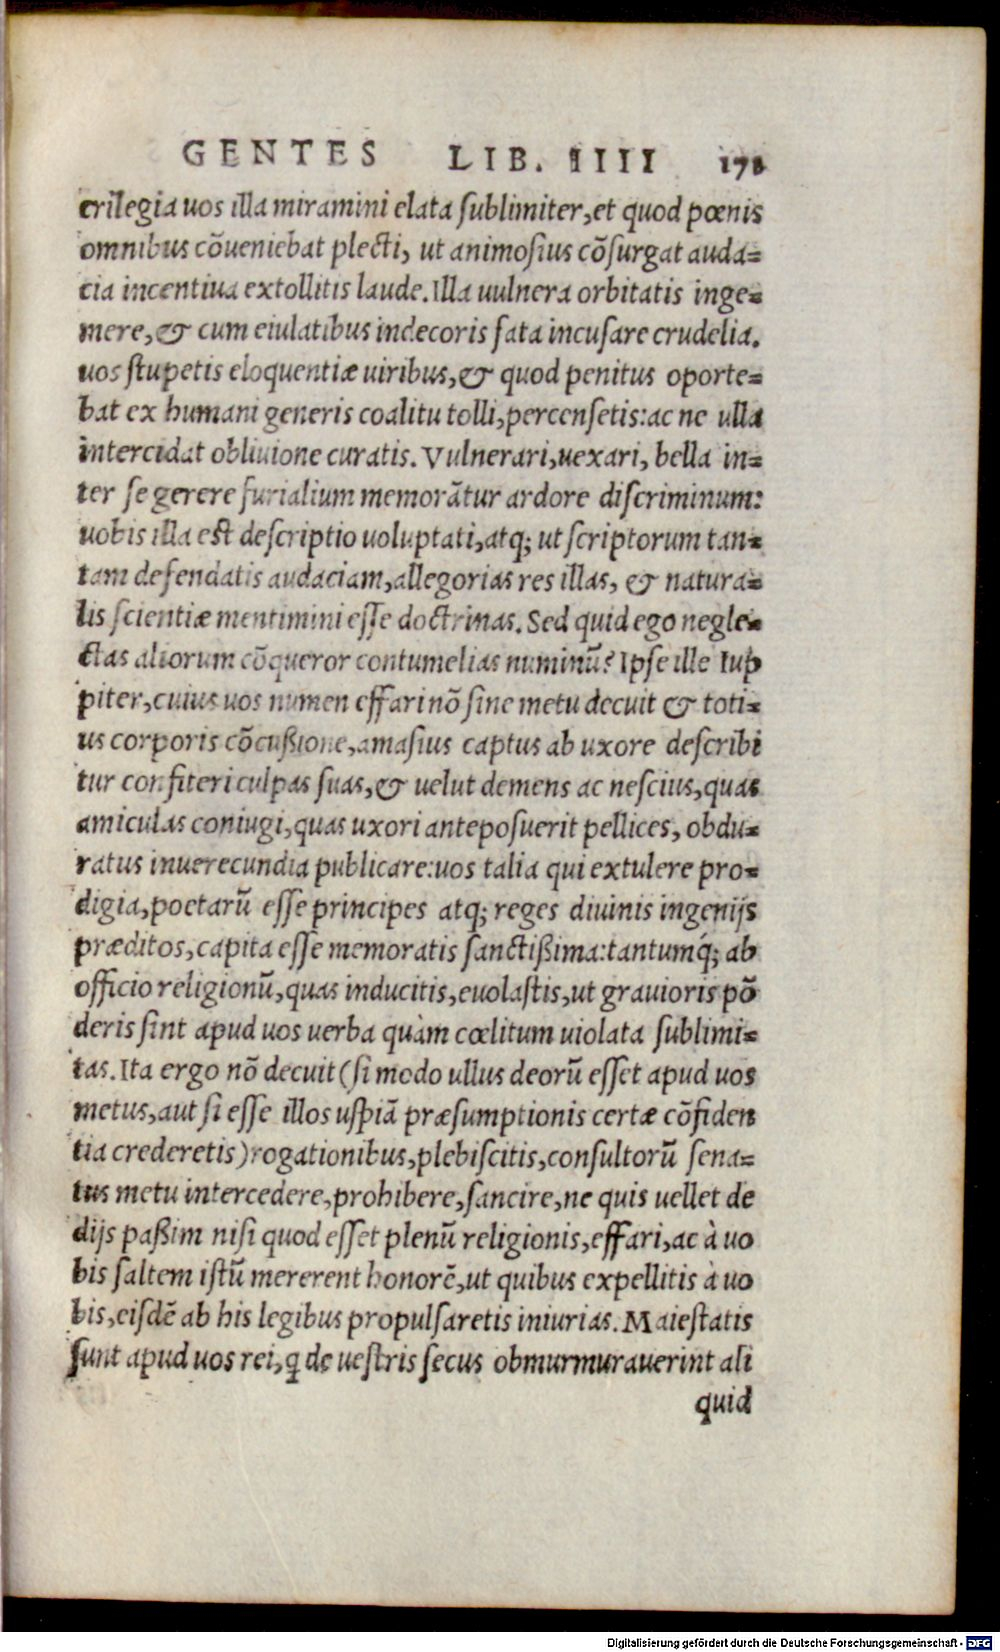 GENTES LIB. IIII 171
crilegia uos illa miramini elata ſublimiter, et quod pœnis
omnibus cõueniebat plecti, ut animoſius cõſurgat auda=
cia incentiua extollitis laude. Illa uulnera orbitatis inge=
mere, & cum eiulatibus indecoris fata incuſare crudelia.
uos ſtupetis eloquentiæ uiribus, & quod penitus oporte=
bat ex humani generis coalitu tolli, percenſetis: ac ne ulla
intercidat obliuione curatis. Vulnerari, uexari, bella in=
ter ſe gerere furialium memorãtur ardore diſcriminum:
uobis illa eſt deſcriptio uoluptati, atq; ut ſcriptorum tan=
tam defendatis audaciam, allegorias res illas, & natura=
lis ſcientiæ mentimini eſſe doctrinas. Sed quid ego negle=
ctas aliorum cõqueror contumelias numinũ? Ipſe ille Iup
piter, cuius uos numen effari nõ ſine metu decuit & toti=
us corporis cõcußione, amaſius captus ab uxore deſcribi
tur confiteri culpas ſuas, & uelut demens ac neſcius, quas
amiculas coniugi, quas uxori antepoſuerit pellices, obdu=
ratus inuerecundia publicare: uos talia qui extulere pro=
digia, poetarũ eſſe principes atq; reges diuinis ingenijs
præditos, capita eſſe memoratis ſanctißima: tantumq́; ab
officio religionũ, quas inducitis, euolaſtis, ut grauioris põ
deris ſint apud uos uerba quàm cœlitum uiolata ſublimi=
tas. Ita ergo nõ decuit (ſi modo ullus deorũ eſſet apud uos
metus, aut ſi eſſe illos uſpiã præſumptionis certæ cõfiden
tia crederetis) rogationibus, plebiſcitis, conſultorũ ſena=
tus metu intercedere, prohibere, ſancire, ne quis uellet de
dijs paßim niſi quod eſſet plenũ religionis, effari, ac à uo
bis ſaltem iſtũ mererent honorẽ, ut quibus expellitis à uo
bis, eiſdẽ ab his legibus propulſaretis iniurias. Maieſtatis
ſunt apud uos rei, q̃ de ueſtris ſecus obmurmurauerint ali
quid
Digitalisierung gefördert durch die Deutsche Forschungsgemeinschaft - DFG